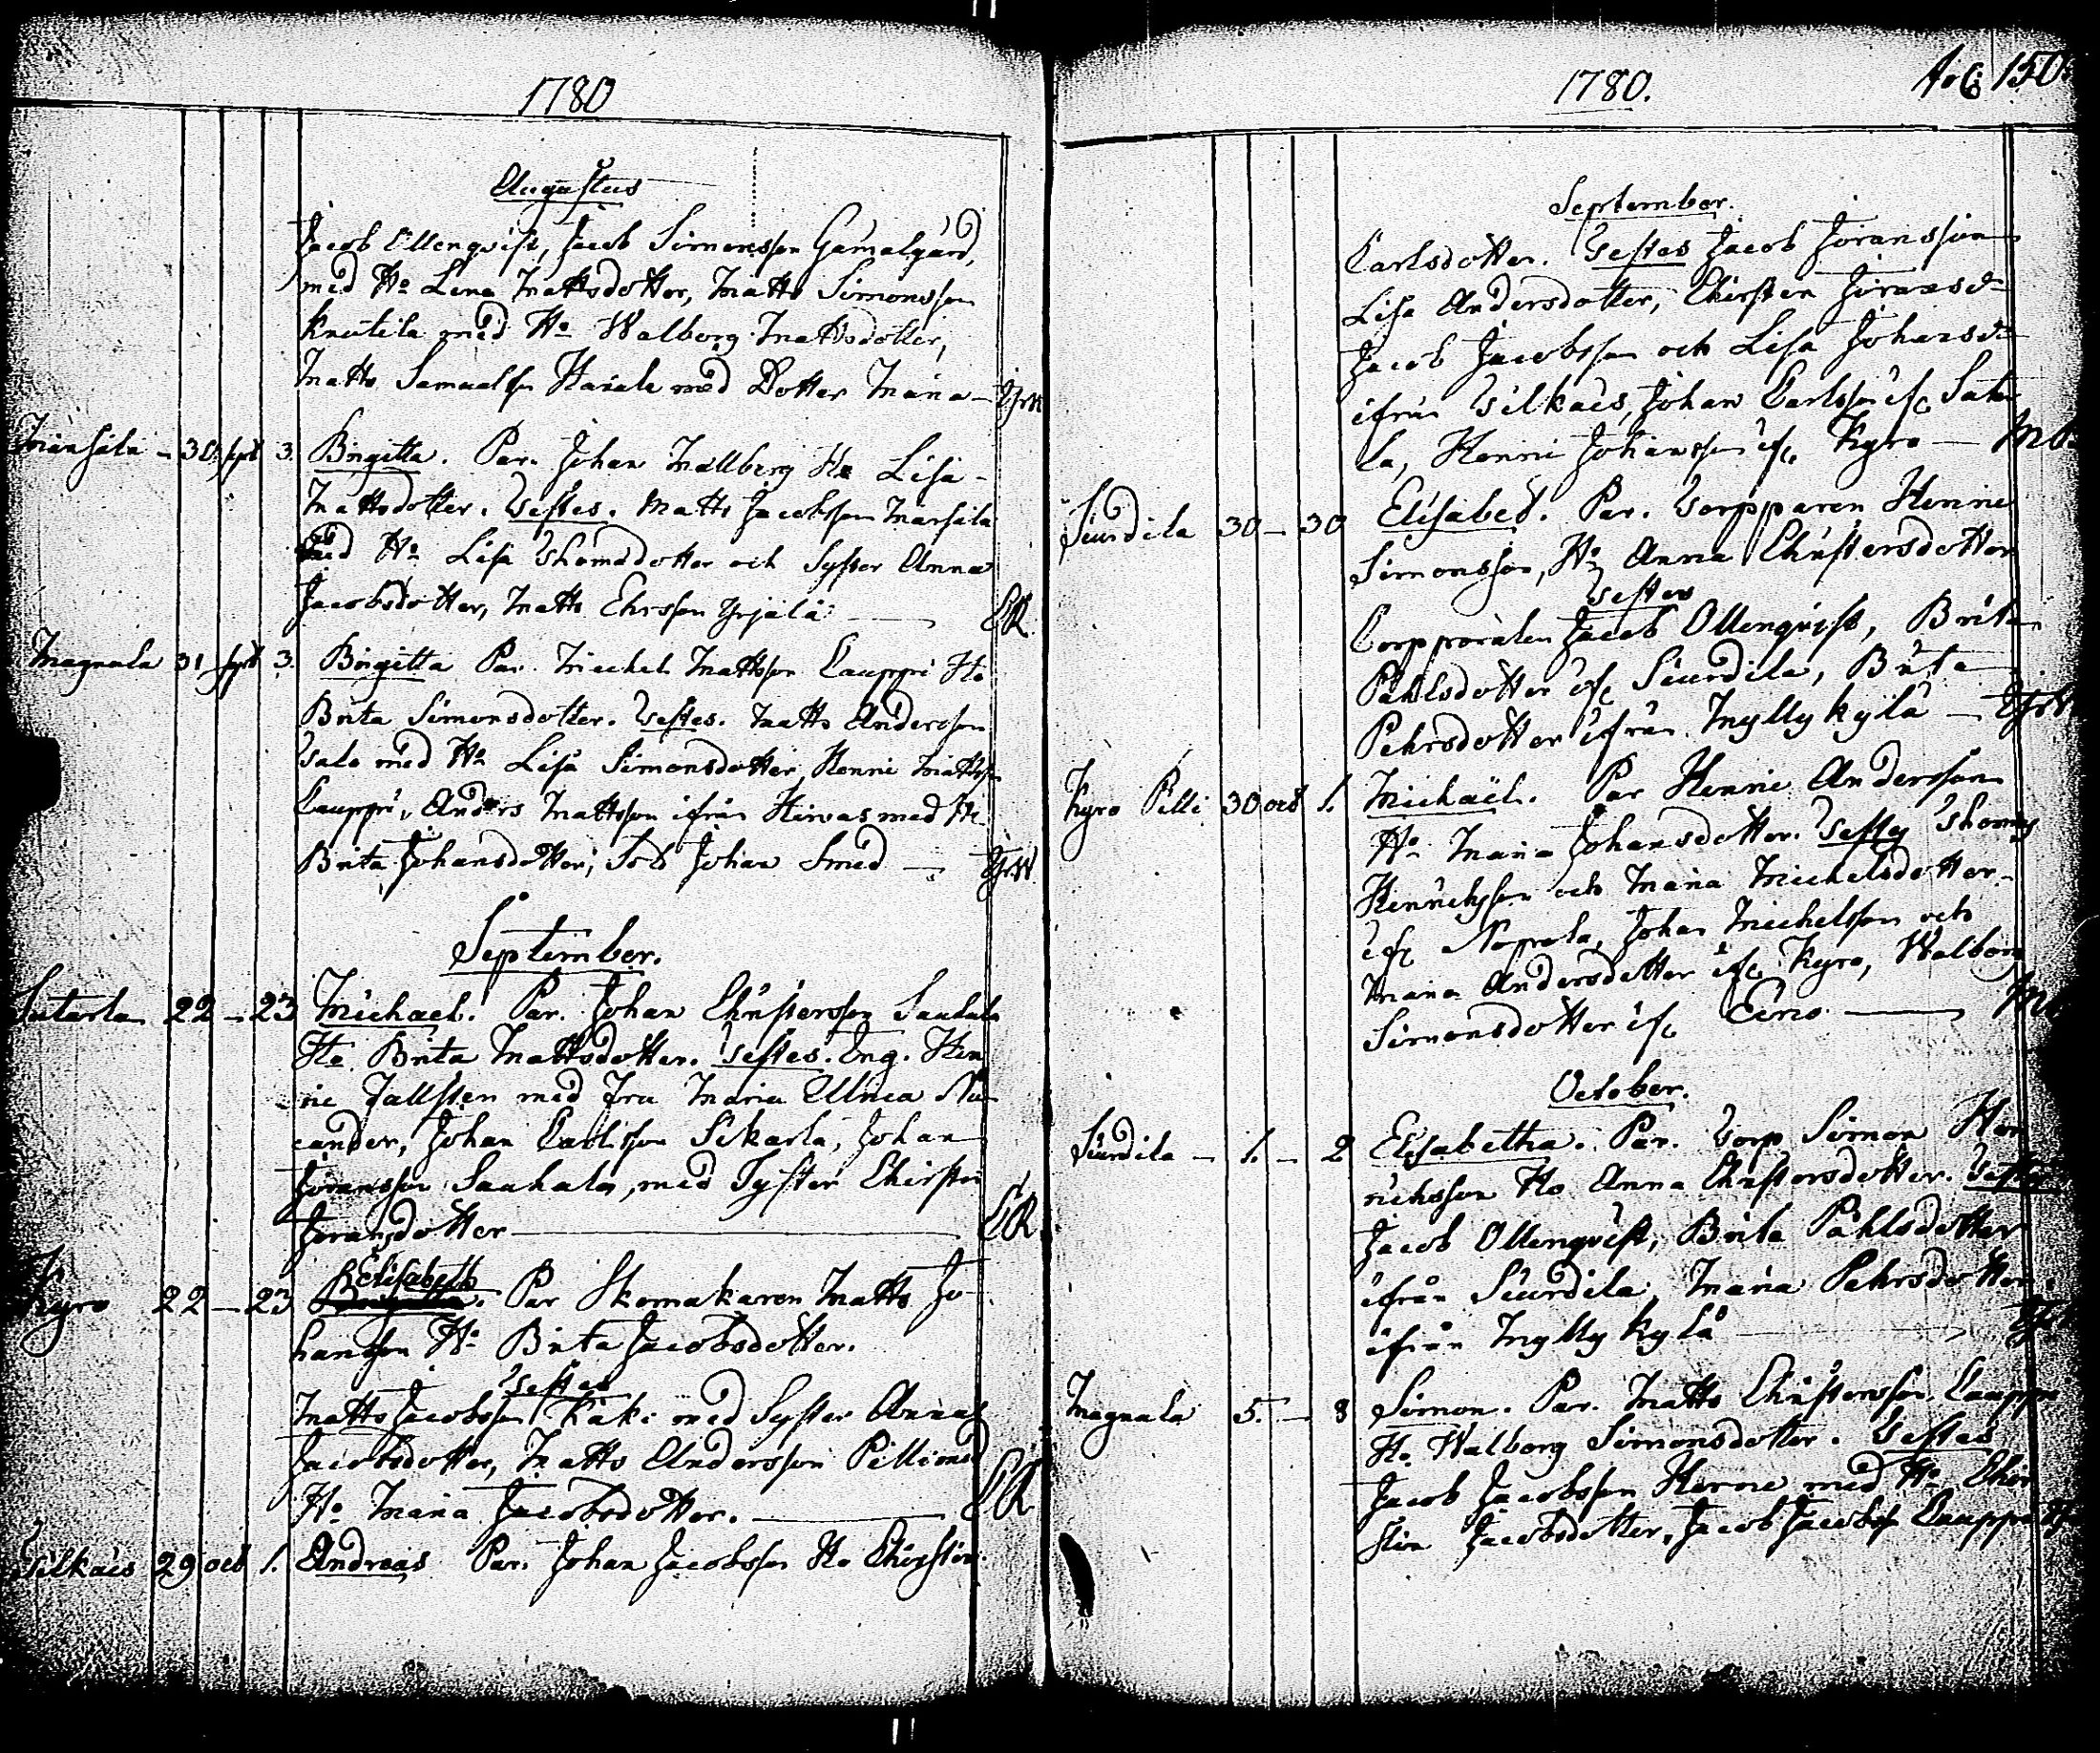 1780
Augustus
Jacob Ollenqvist, Jacob Simonsson Gamalgård,
med Ho Lena Mattsdotter, Matts Simonsson
Knutila med Ho Walborg Mattsdotter,
Matts Samuelsson med Dotter Maria —
30 sept 3. Birgitta. Par. Johan Mallberg Ho Lisa
Mattsdotter. Testes. Matts Jacobsson Marsila
med Ho Lisa Thomsdotter och Syster Anna
Jacobsdotter, Matts Ehrsson Yrjälä — ER.
Magnala 31 sept 3. Birgitta Par. Michel Mattsson Lauppri Ho
Brita Simonsdotter. Testes. Matts Andersson
Salo med Ho Lisa Simonsdotter, Henric Mattsson
Lauppri, Anders Mattsson ifrån Hirvas med Ho
Brita Johansdotter, Johan Smed —
September.
22 — 23 Michael. Par. Johan Christersson Sauhala
Ho Brita Mattsdotter. Testes. Hen
ric Fallsten med Fru Maria Ulrica
cander, Johan Carlsson Sikarla, Johan
Joransson Sauhala, med Syster Chirstin
Joransdotter — ER.
Kyro 22 — 23 Elisabeth
Birgitta. Par Skomakaren Matts Jo
hansson Ho Brita Jacobsdotter.
Testes
Matts Jacobsson Käki med Syster Anna
Jacobsdotter, Matts Andersson Pilli med
Ho Maria Jacobsdotter. — ER
Vilkais 29 oct 1. Andreas Par. Johan Jacobsson Ho Chirstin
1780. 150
September.
Carlsdotter. Testes Jacob Joransson
Lisa Andersdotter, Chirstin Joransdr
Jacob Jacobsson och Lisa Johansdr
ifrån Vilkais, Johan Carlsson if.
la, Henric Johansson if. Kyro —
Siurdila 30 — 30 Elisabet. Par. Torpparen Henric
Simonsson, Ho Anna Christersdotter
Testes
Corpporalen Jacob Ollenqvist, Brita
Påhlsdotter if. Siurdila, Brita
Pehrsdotter ifrån Myllykylä —
Kyro Pilli 30 oct 1. Michaël. Par Henric Andersson
Ho Maria Johansdotter. Testes Thomas
Henrichsson och Maria Michelsdotter
if. Nopola, Johan Michelsson och
Maria Andersdotter if. Kyro, Walborg
Simonsdotter if. —
October.
Siurdila — 1. — 2 Elisabetha. Par. Torp Simon Hen
richsson Ho Anna Christersdotter. Testes
Jacob Ollenqvist, Brita Påhlsdotter
ifrån Siurdila, Maria Pehrsdotter
ifrån Myllykylä —
Magnala 5. — 8 Simon. Par. Matts Christersson Lauppri
Ho Walborg Simonsdotter. Testes
Jacob Jacobsson Horne med Ho Chir
stin Jacobsdotter, Jacob Jacobss Lauppri